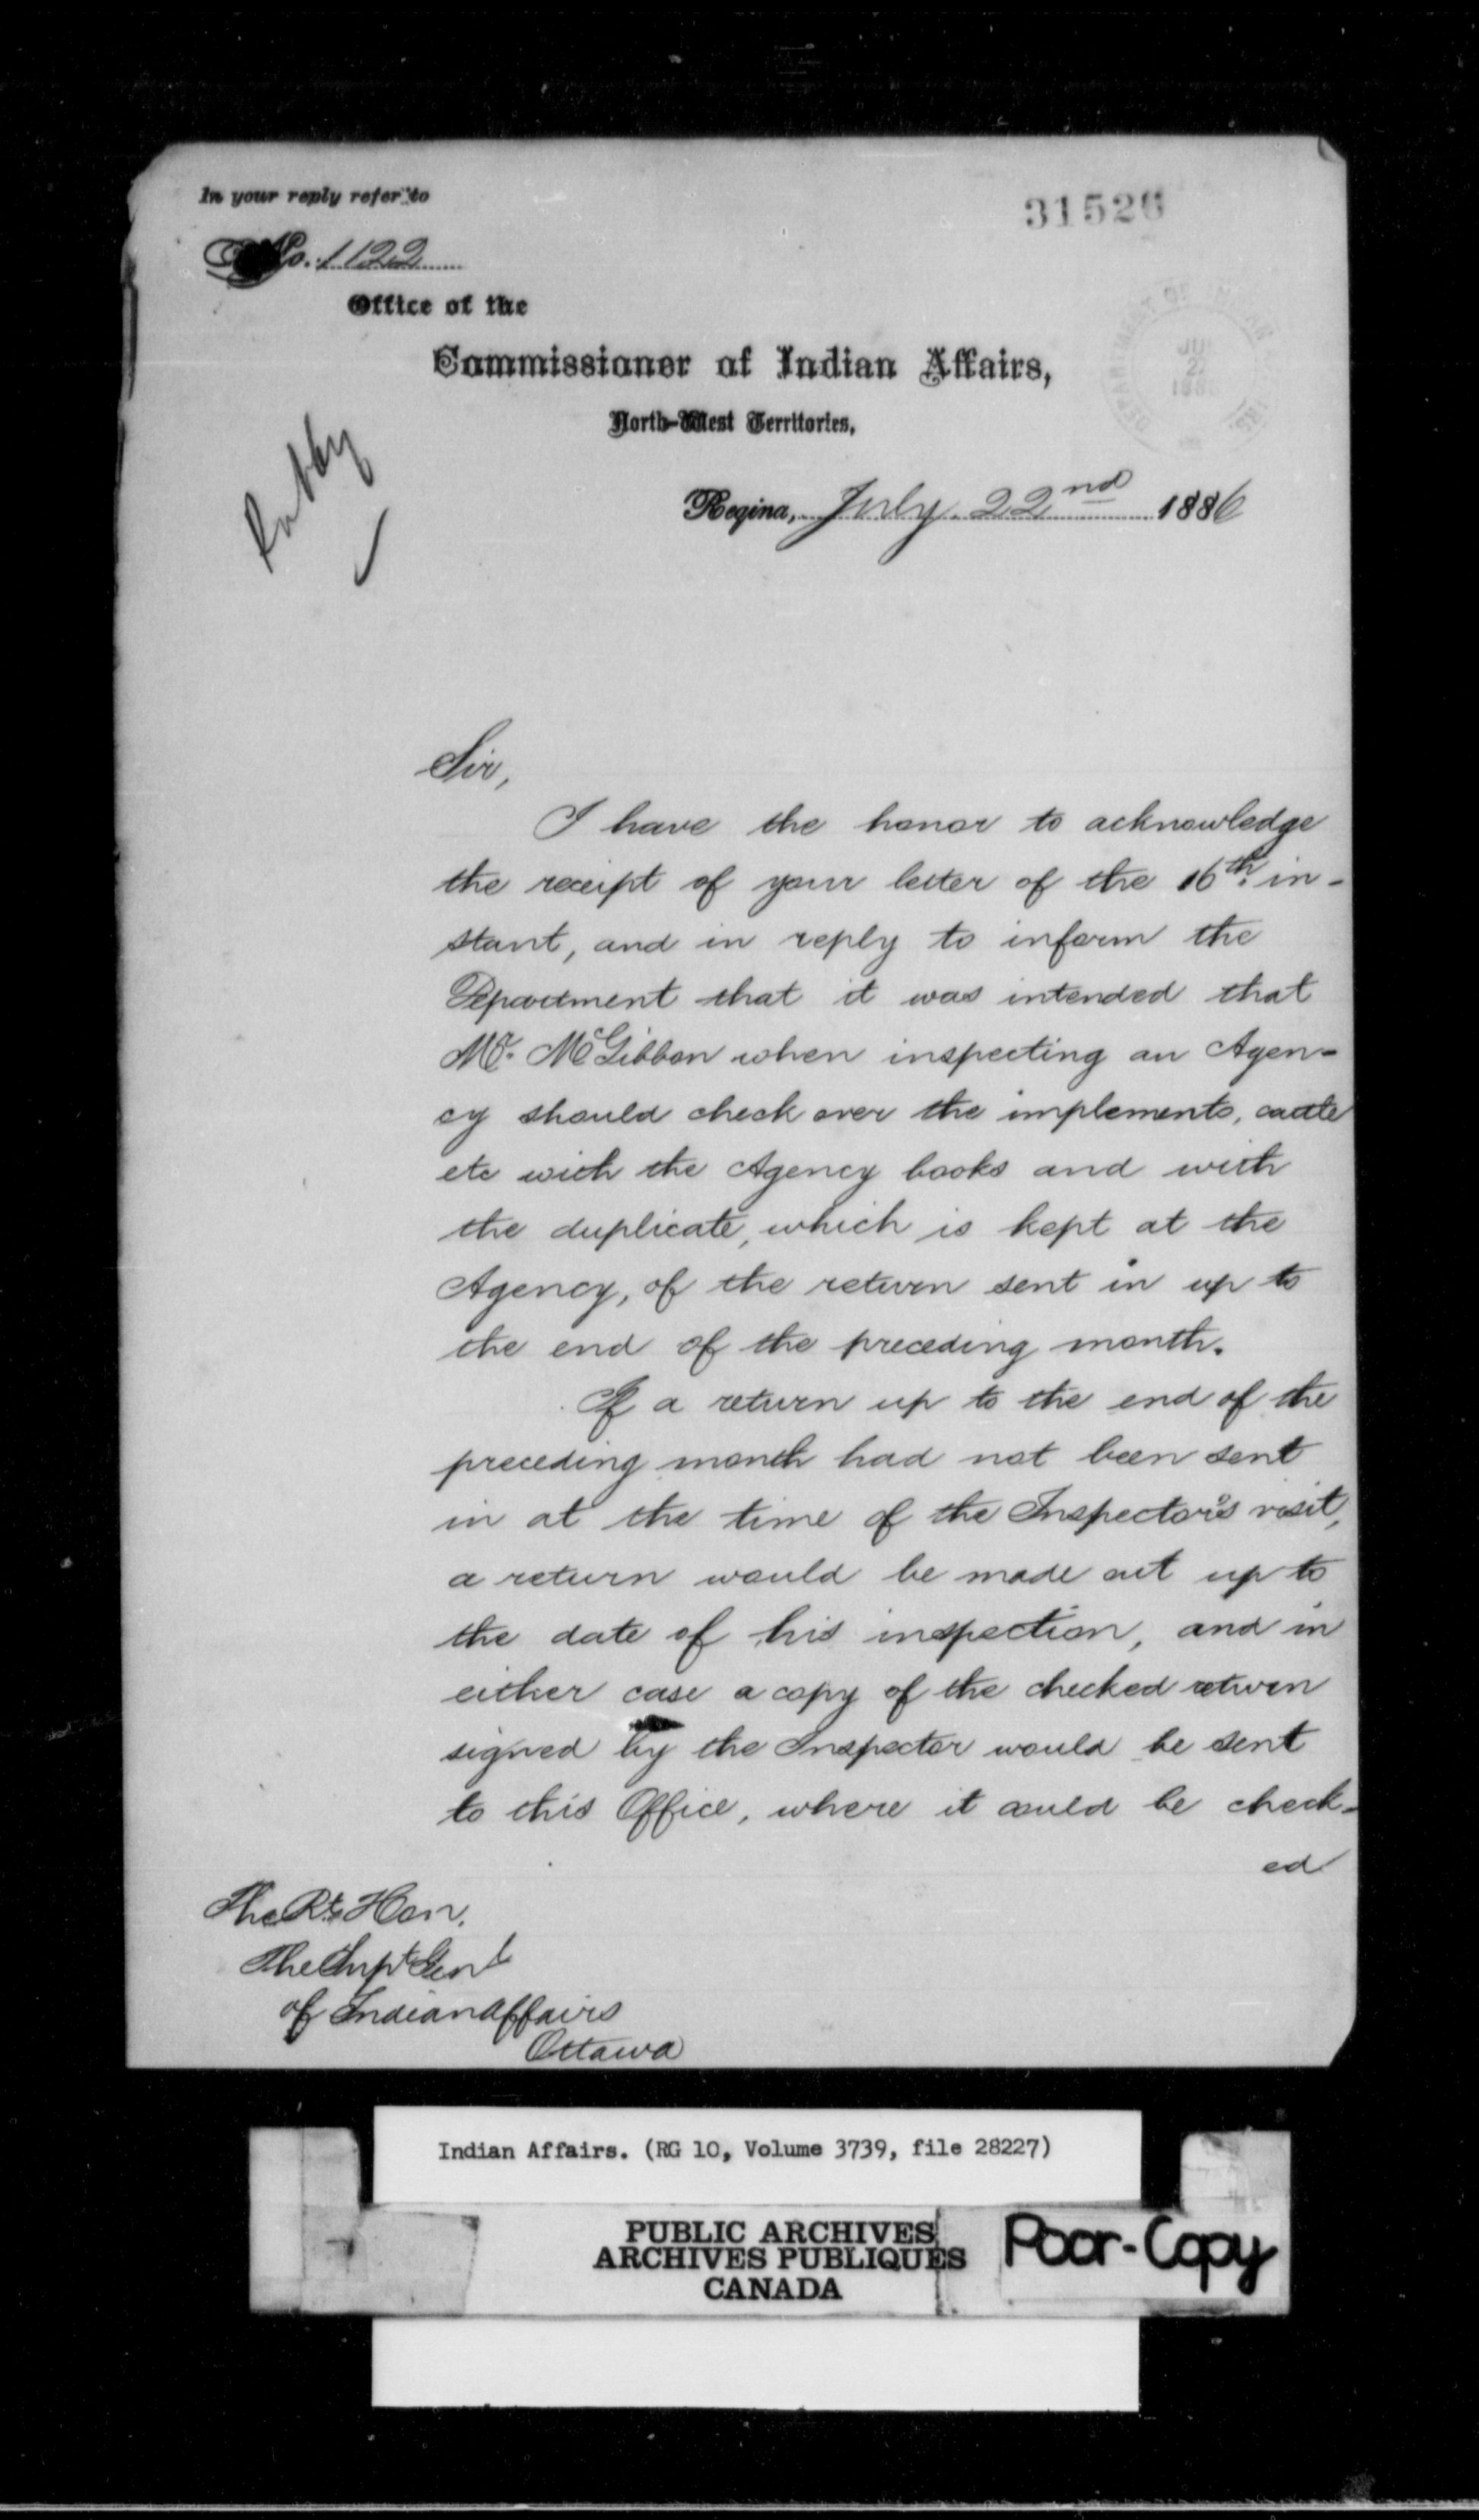 In your reply refer to
31526
No. 1122
Office of the
Commissioner of Indian Affairs,
North-West Territories,
Regina, July 22nd 1886
Sir,
I have the honor to acknowledge
the receipt of your letter of the 16th in-
stant, and in reply to inform the
Department that it was intended that
Mr. McGibbon when inspecting an Agen-
cy should check over the implements, cattle
etc with the Agency books and with
the duplicate, which is kept at the
Agency, of the return sent in up to
the end of the preceding month.
If a return up to the end of the
preceding month had not been sent
in at the time of the Inspector's visit,
a return would be made out up to
the date of his inspection, and in
either case a copy of the checked return
signed by the Inspector would be sent
to this Office, where it could be check-
ed
The Rt. Hon.
The Supt Genl
of Indian Affairs
Ottawa
Indian Affairs. (RG 10, Volume 3739, file 28227)
PUBLIC ARCHIVES
ARCHIVES PUBLIQUES
CANADA
Poor-Copy